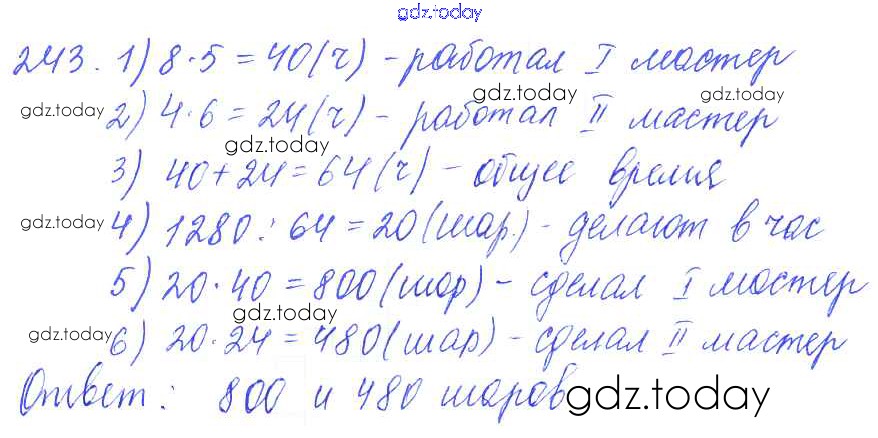 gdz.today
243. 1) 8·5 = 40 (ч) - работал I мастер
gdz.today gdz.today
gdz.today 2) 4·6 = 24 (ч) - работал II мастер
gdz.today
3) 40+24 = 64 (ч) - общее время
gdz.today 4) 1280 : 64 = 20 (шар.) - делают в час
5) 20·40 = 800 (шар) - сделал I мастер
gdz.today
gdz.today 6) 20·24 = 480 (шар) - сделал II мастер
Ответ: 800 и 480 шаров
gdz.today